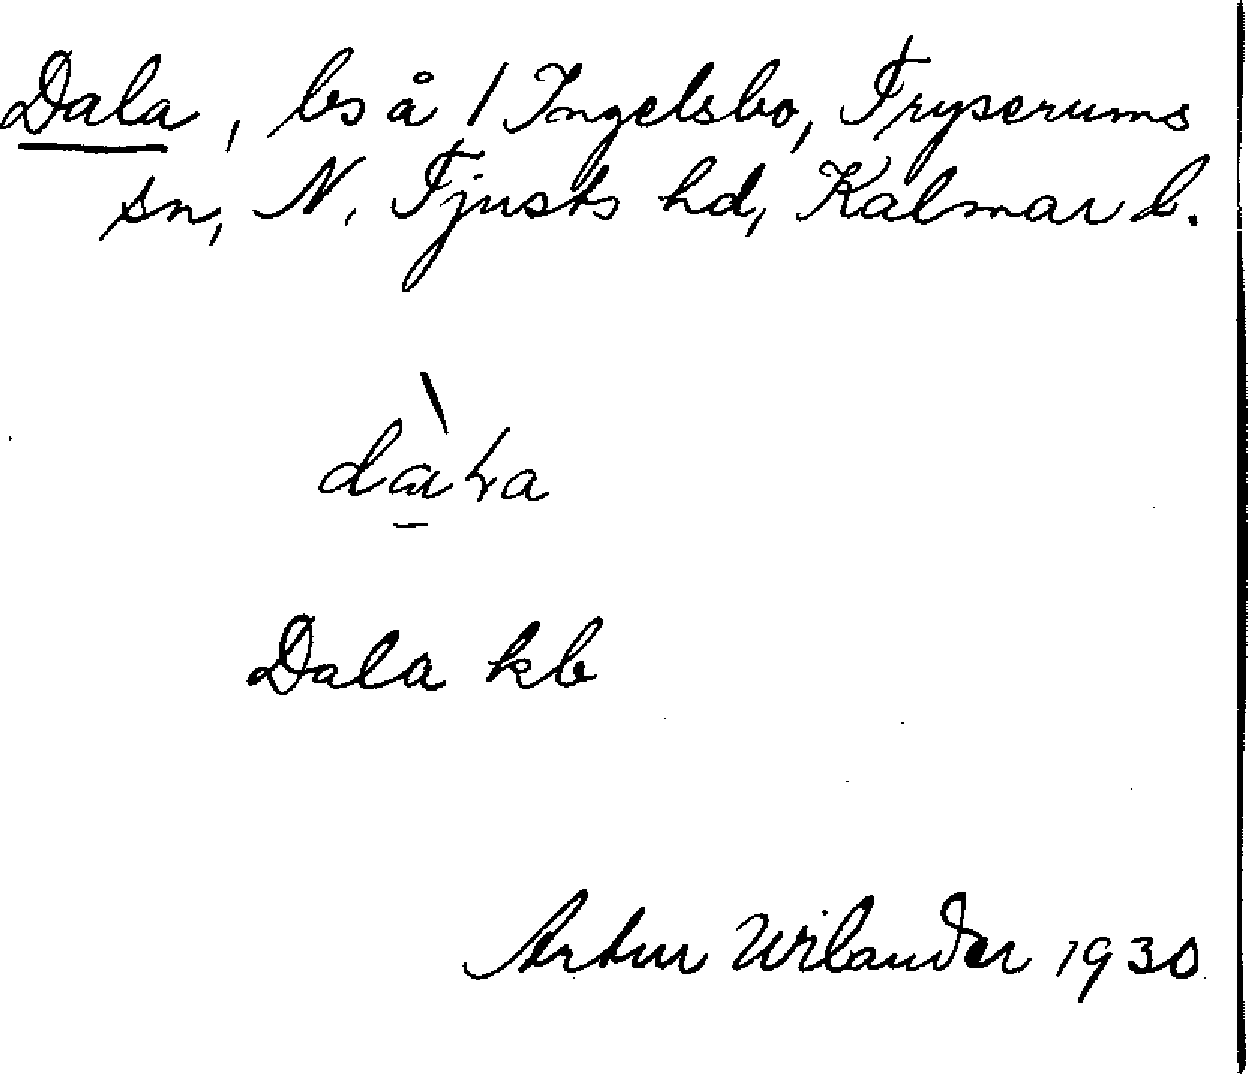 Dala, ls å 1 Ingelsbo, Tryserums
sn, N. Tjusts hd, Kalmar l.
Dala kb
Artur Wilander 1930